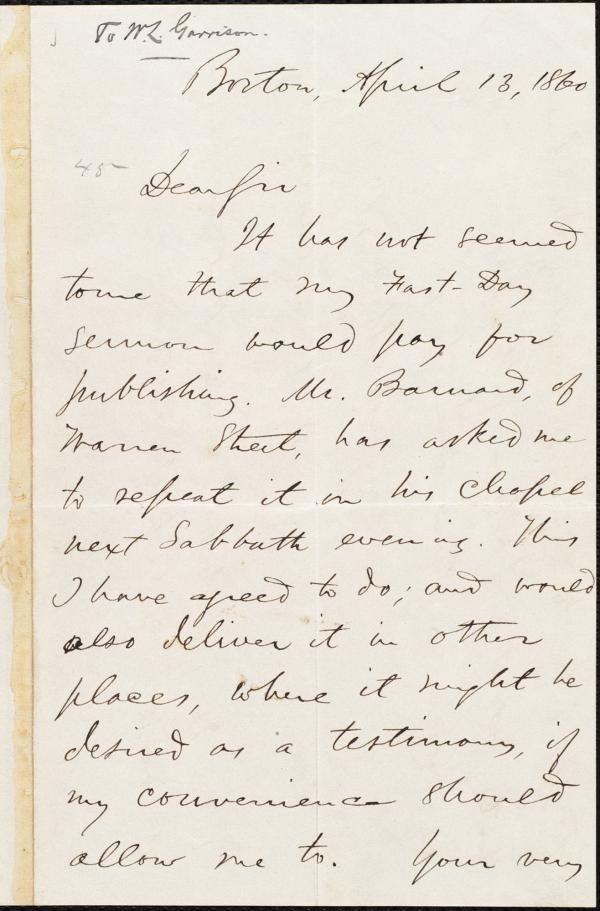 To W. L. Garrison.
Boston, April 13, 1860
45
Dear Sir
It has not seemed
to me that my Fast-Day
sermon would pay for
publishing. Mr. Barnard, of
Warren Street, has asked me
to repeat it in his chapel
next Sabbath evening. This
I have agreed to do; and would
also deliver it in other
places, where it might be
desired as a testimony, if
my convenience should
allow me to. Your very